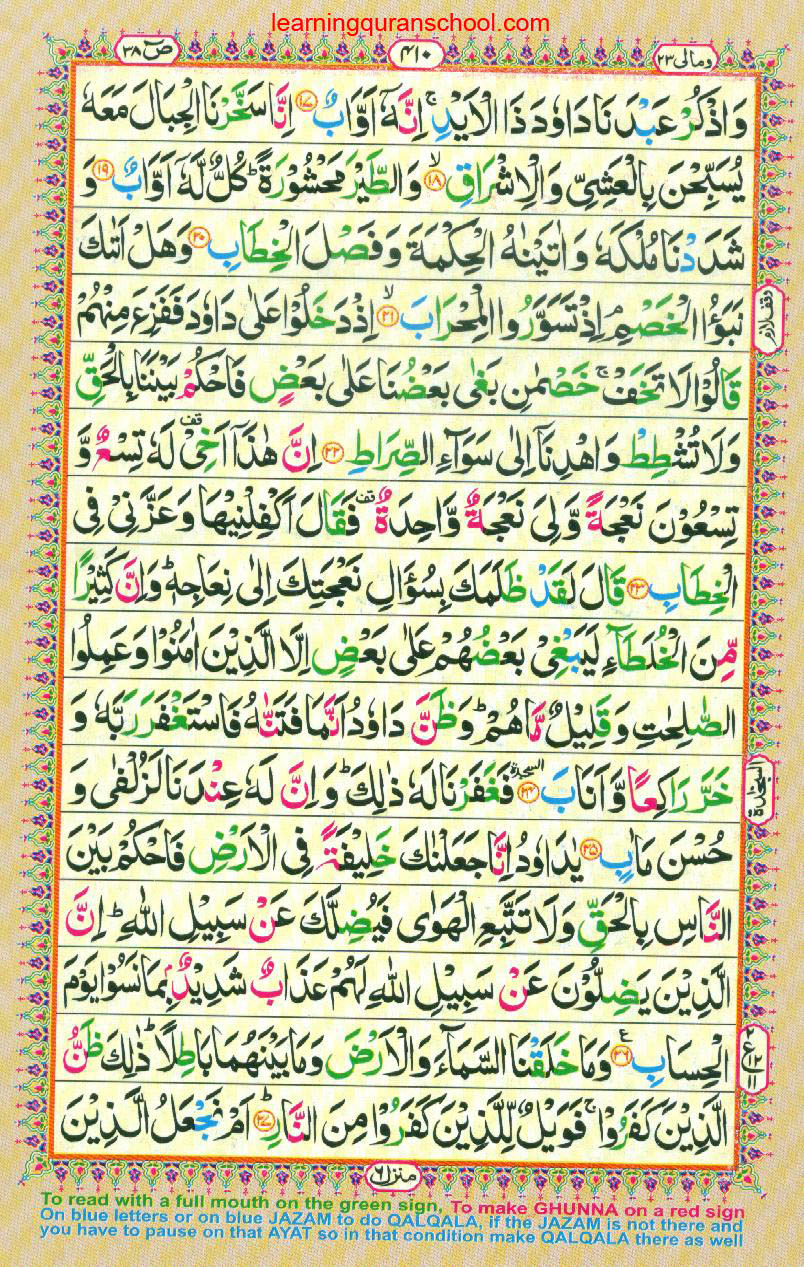 learningquranschool.com
ومالی ٢٣
٤١٠
صٓ ٣٨
وَاذْكُرْ عَبْدَنَا دَاوٗدَ ذَا الْاَيْدِ ۚ اِنَّهٗۤ اَوَّابٌ ١٧ اِنَّا سَخَّرْنَا الْجِبَالَ مَعَهٗ
يُسَبِّحْنَ بِالْعَشِيِّ وَالْاِشْرَاقِ ۙ ١٨ وَالطَّيْرَ مَحْشُوْرَةً ؕ كُلٌّ لَّهٗۤ اَوَّابٌ ١٩ وَ
شَدَدْنَا مُلْكَهٗ وَاٰتَيْنٰهُ الْحِكْمَةَ وَفَصْلَ الْخِطَابِ ٢٠ وَهَلْ اَتٰىكَ
نَبَؤُا الْخَصْمِ ۘ اِذْ تَسَوَّرُوا الْمِحْرَابَ ۙ ٢١ اِذْ دَخَلُوْا عَلٰى دَاوٗدَ فَفَزِعَ مِنْهُمْ
وقف لازم
قَالُوْا لَا تَخَفْ ۚ خَصْمٰنِ بَغٰى بَعْضُنَا عَلٰى بَعْضٍ فَاحْكُمْ بَيْنَنَا بِالْحَقِّ
وَلَا تُشْطِطْ وَاهْدِنَاۤ اِلٰى سَوَآءِ الصِّرَاطِ ٢٢ اِنَّ هٰذَاۤ اَخِيْ قف لَهٗ تِسْعٌ وَّ
تِسْعُوْنَ نَعْجَةً وَّلِيَ نَعْجَةٌ وَّاحِدَةٌ قف فَقَالَ اَكْفِلْنِيْهَا وَعَزَّنِيْ فِي
الْخِطَابِ ٢٣ قَالَ لَقَدْ ظَلَمَكَ بِسُؤَالِ نَعْجَتِكَ اِلٰى نِعَاجِهٖ ؕ وَاِنَّ كَثِيْرًا
مِّنَ الْخُلَطَآءِ لَيَبْغِيْ بَعْضُهُمْ عَلٰى بَعْضٍ اِلَّا الَّذِيْنَ اٰمَنُوْا وَعَمِلُوا
الصّٰلِحٰتِ وَقَلِيْلٌ مَّا هُمْ ؕ وَظَنَّ دَاوٗدُ اَنَّمَا فَتَنّٰهُ فَاسْتَغْفَرَ رَبَّهٗ وَ
خَرَّ رَاكِعًا وَّاَنَابَ السجدة ٢٤ فَغَفَرْنَا لَهٗ ذٰلِكَ ؕ وَاِنَّ لَهٗ عِنْدَنَا لَزُلْفٰى وَ
السجدة
حُسْنَ مَاٰبٍ ٢٥ يٰدَاوٗدُ اِنَّا جَعَلْنٰكَ خَلِيْفَةً فِي الْاَرْضِ فَاحْكُمْ بَيْنَ
النَّاسِ بِالْحَقِّ وَلَا تَتَّبِعِ الْهَوٰى فَيُضِلَّكَ عَنْ سَبِيْلِ اللّٰهِ ؕ اِنَّ
الَّذِيْنَ يَضِلُّوْنَ عَنْ سَبِيْلِ اللّٰهِ لَهُمْ عَذَابٌ شَدِيْدٌۢ بِمَا نَسُوْا يَوْمَ
الْحِسَابِ ٢٦ ع وَمَا خَلَقْنَا السَّمَآءَ وَالْاَرْضَ وَمَا بَيْنَهُمَا بَاطِلًا ؕ ذٰلِكَ ظَنُّ
٢ ع ١٢ ١١
الَّذِيْنَ كَفَرُوْا ۚ فَوَيْلٌ لِّلَّذِيْنَ كَفَرُوْا مِنَ النَّارِ ؕ ٢٧ اَمْ نَجْعَلُ الَّذِيْنَ
منزل ٦
To read with a full mouth on the green sign, To make GHUNNA on a red sign
On blue letters or on blue JAZAM to do QALQALA, if the JAZAM is not there and
you have to pause on that AYAT so in that condition make QALQALA there as well